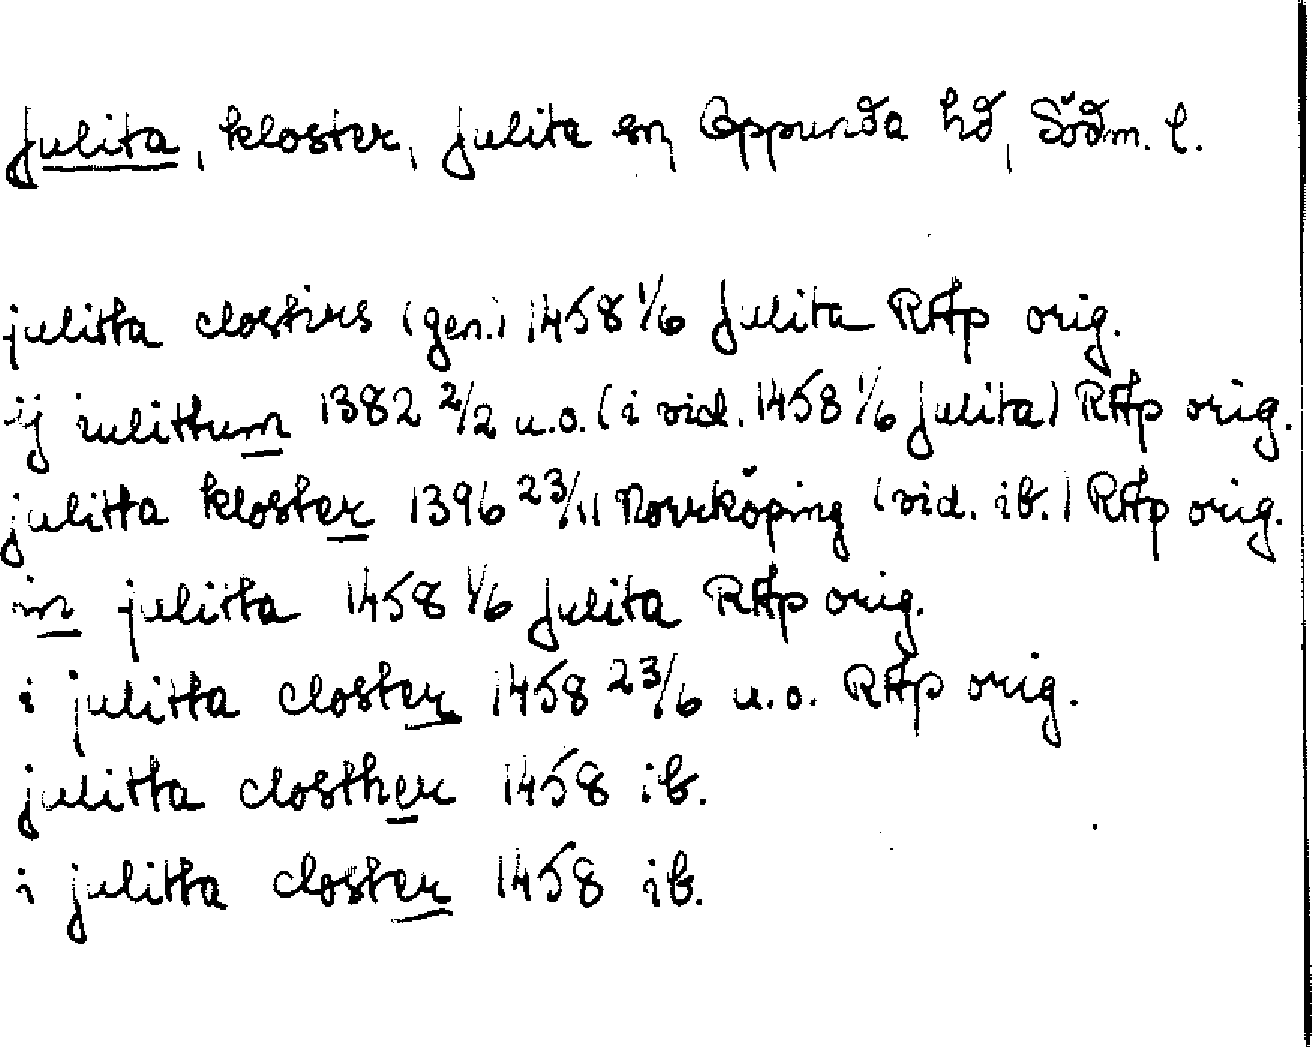 Julita, kloster, Julita sn, Oppunda hd, Södm. l.
julitta clostirs (gen.) 1458 1/6 Julita RAp orig.
ij iulittum 1382 2/2 u.o. (i vid. 1458 1/6 Julita) RAp orig.
julitta kloster 1396 23/11 Norrköping (vid. ib.) RAp orig.
in julitta 1458 1/6 Julita RAp orig.
i julitta closter 1458 23/6 u.o. RAp orig.
julitta closther 1458 ib.
i julitta closter 1458 ib.